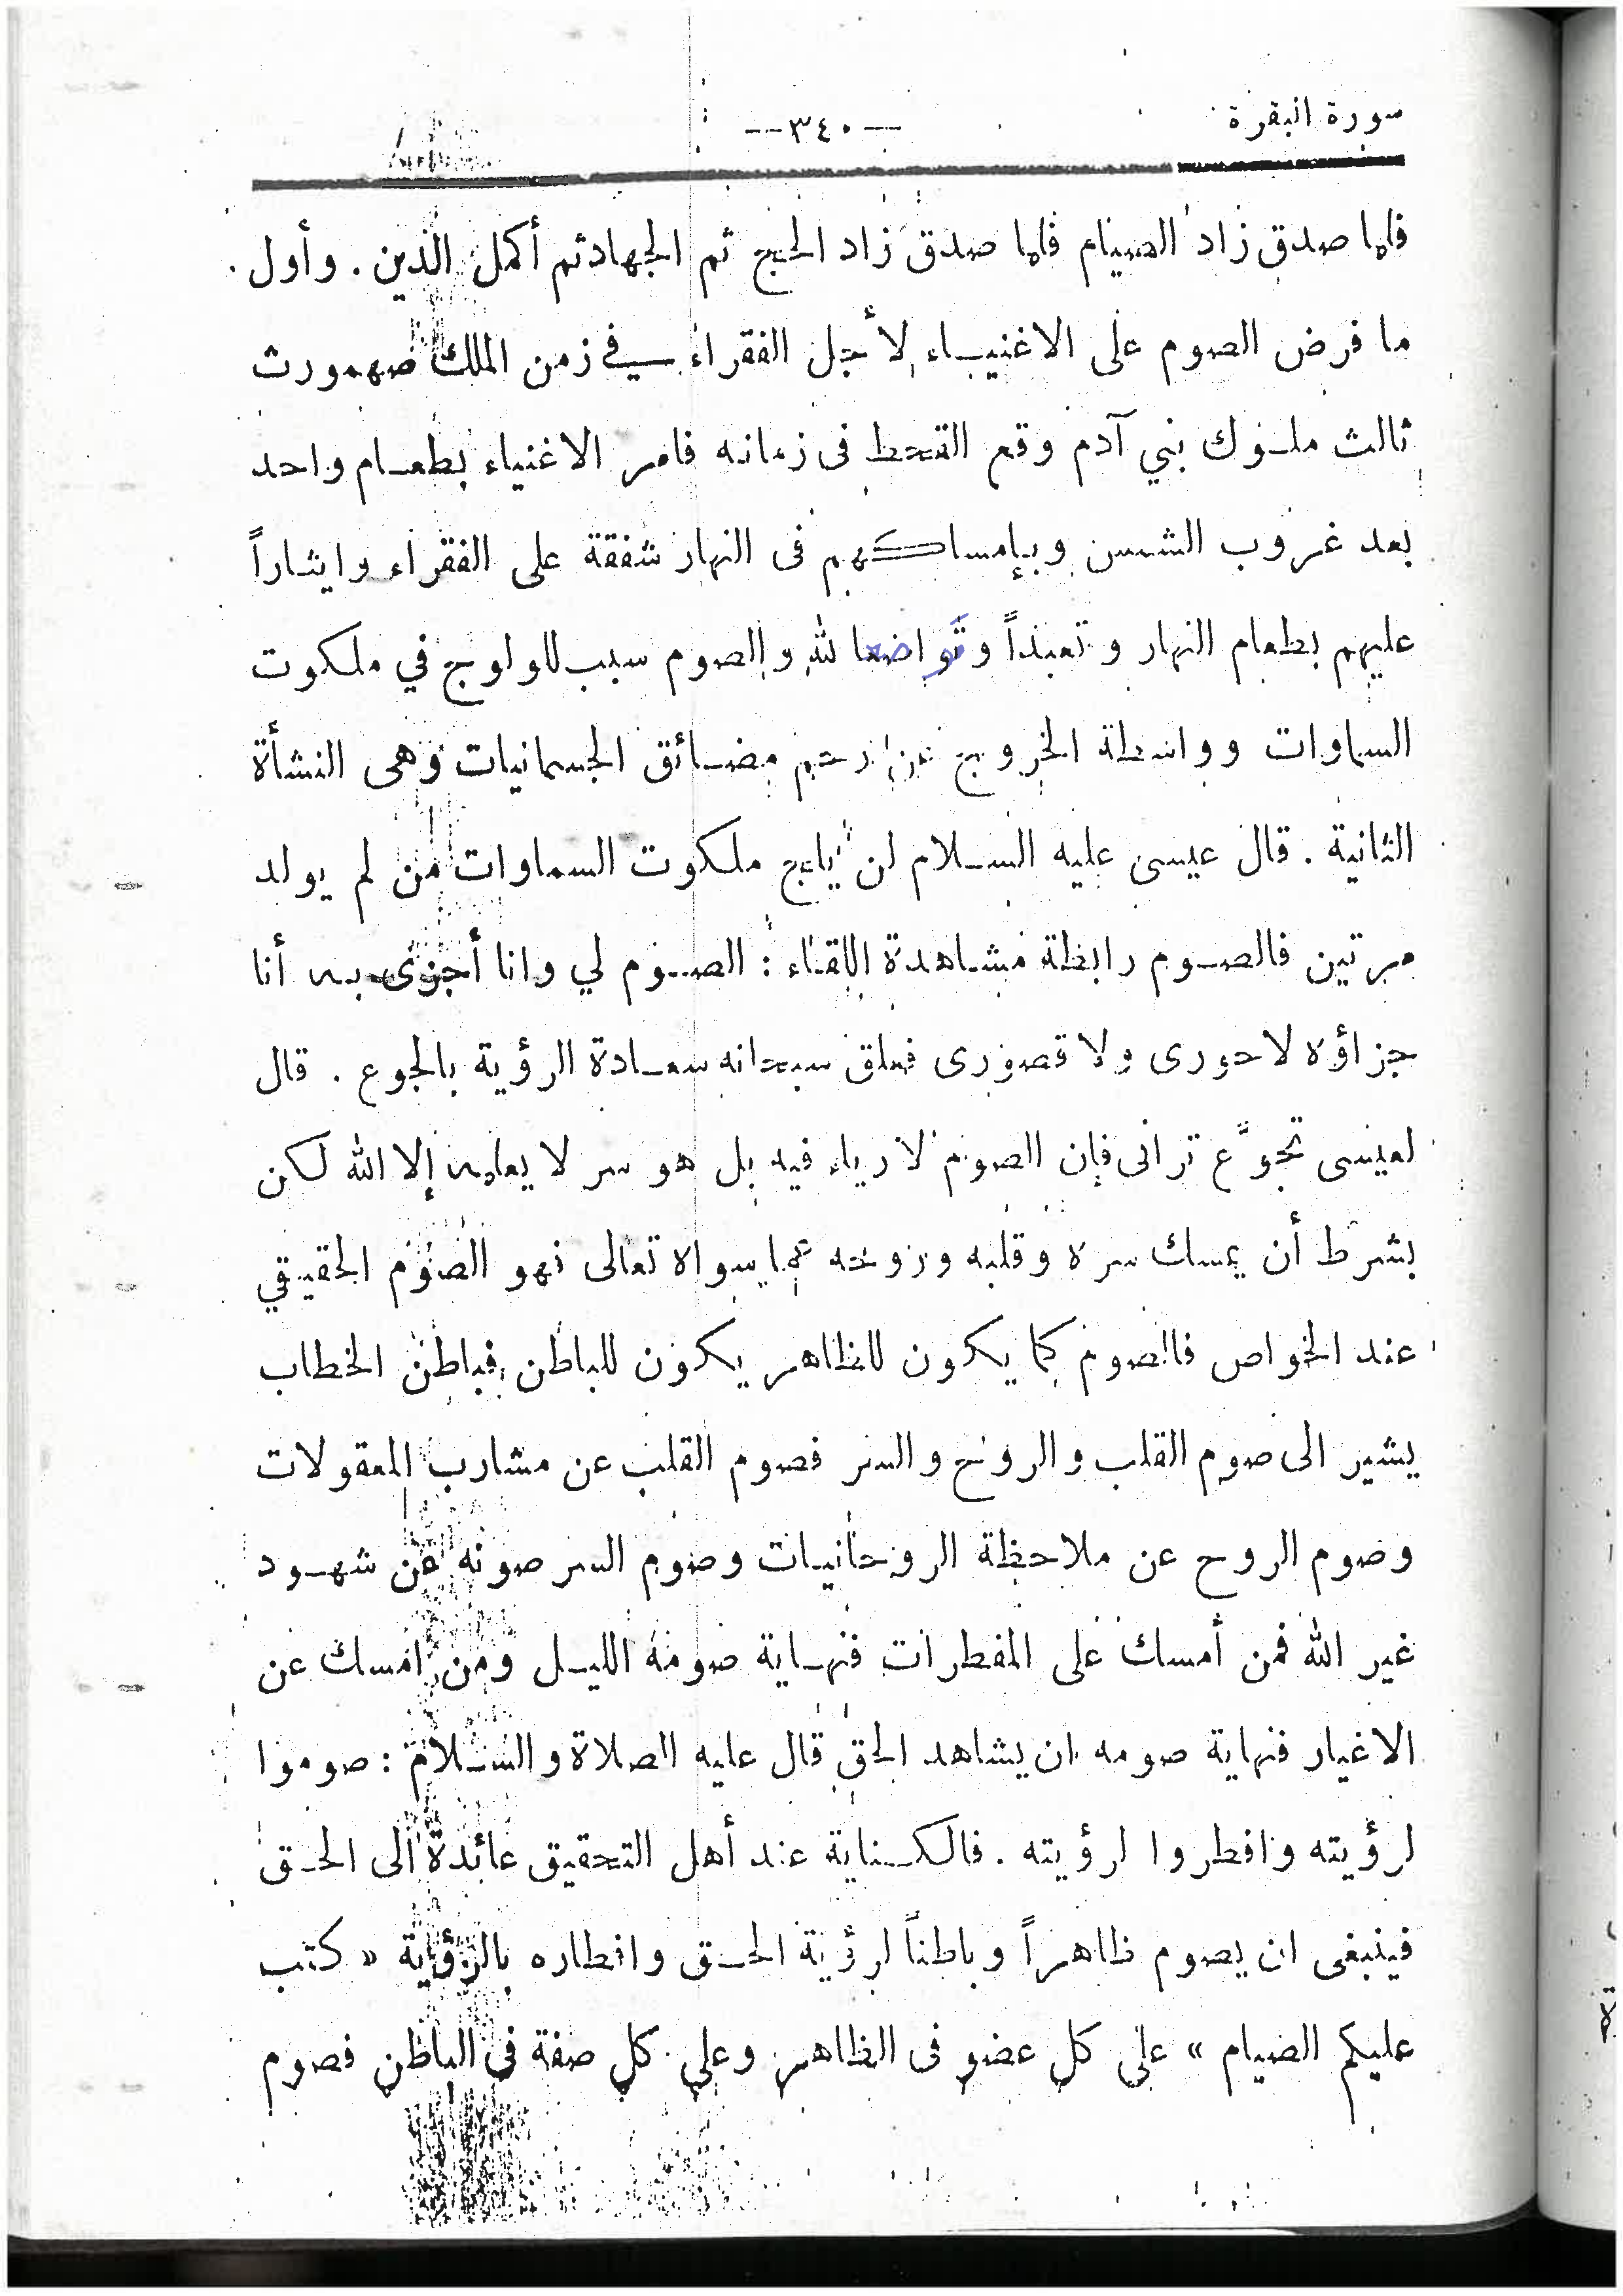 سورة البقرة
--٣٤٠--
فلما صدق زاد الصيام فلما صدق زاد الحج ثم الجهاد ثم أكمل الدين . وأول
ما فرض الصوم على الاغنيـاء لأجل الفقراء في زمن الملك ضهمورث
ثالث ملوك بني آدم وقع القحط فى زمانه فامر الاغنياء بطعـام واحد
بعد غروب الشمس وبإمساكهم فى النهار شفقة على الفقراء وايثـاراً
عليهم بطعام النهار وتعبداً وتواضعا لله والصوم سبب للولوج في ملكوت
السماوات وواسطة الخروج عن رحم مضـائق الجسمانيات وهى النشأة
الثانية . قال عيسى عليه السـلام لن يلج ملكوت السماوات من لم يولد
مرتين فالصـوم رابطة مشـاهدة اللقاء : الصـوم لي وانا أجزى بـه أنا
جزاؤه لا حورى ولا قصورى فعلق سبحانه سعـادة الرؤية بالجوع . قال
لعيسى تجوَّع ترانى فإن الصوم لا رياء فيه بل هو سر لا يعلمه إلا الله لكن
بشرط أن يمسك سره وقلبه وروحه عما سواه تعالى فهو الصوم الحقيقي
عند الخواص فالصوم كما يكون للظاهر يكون للباطن فباطن الخطاب
يشير الى صوم القلب والروح والسر فصوم القلب عن مشارب المعقولات
وصوم الروح عن ملاحظة الروحانيـات وصوم السر صونه عن شهـود
غير الله فمن أمسك على المفطرات فنهـاية صومه الليـل ومن امسك عن
الاغيار فنهاية صومه ان يشاهد الحق قال عليه الصلاة والسـلام : صوموا
لرؤيته وافطروا لرؤيته . فالكـناية عند أهل التحقيق عائدة الى الحـق
فينبغى ان يصوم ظاهراً وباطناً لرؤية الحـق وافطاره بالرؤية « كتب
عليكم الصيام » على كل عضو فى الظاهر وعلى كل صفة فى الباطن فصوم